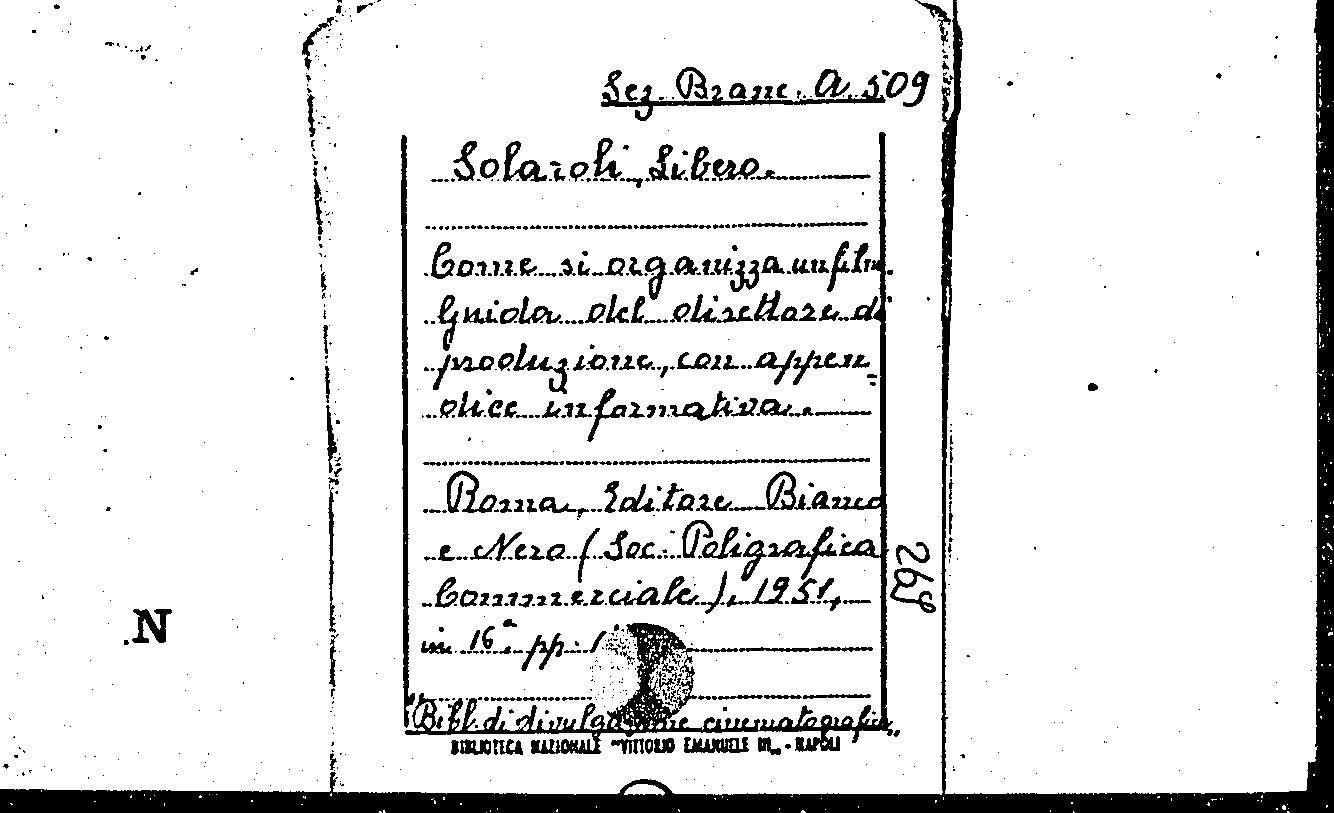 Sez. Branc. A. 509
Solaroli, Libero.
Come si organizza un film.
Guida del direttore di
produzione, con appen=
dice informativa.
Roma, Editore Bianco
e Nero (Soc. Poligrafica
Commerciale), 1951,
in 16° pp.
"Bibl. di divulgazione cinematografica"
BIBLIOTECA NAZIONALE "VITTORIO EMANUELE III" - NAPOLI
N